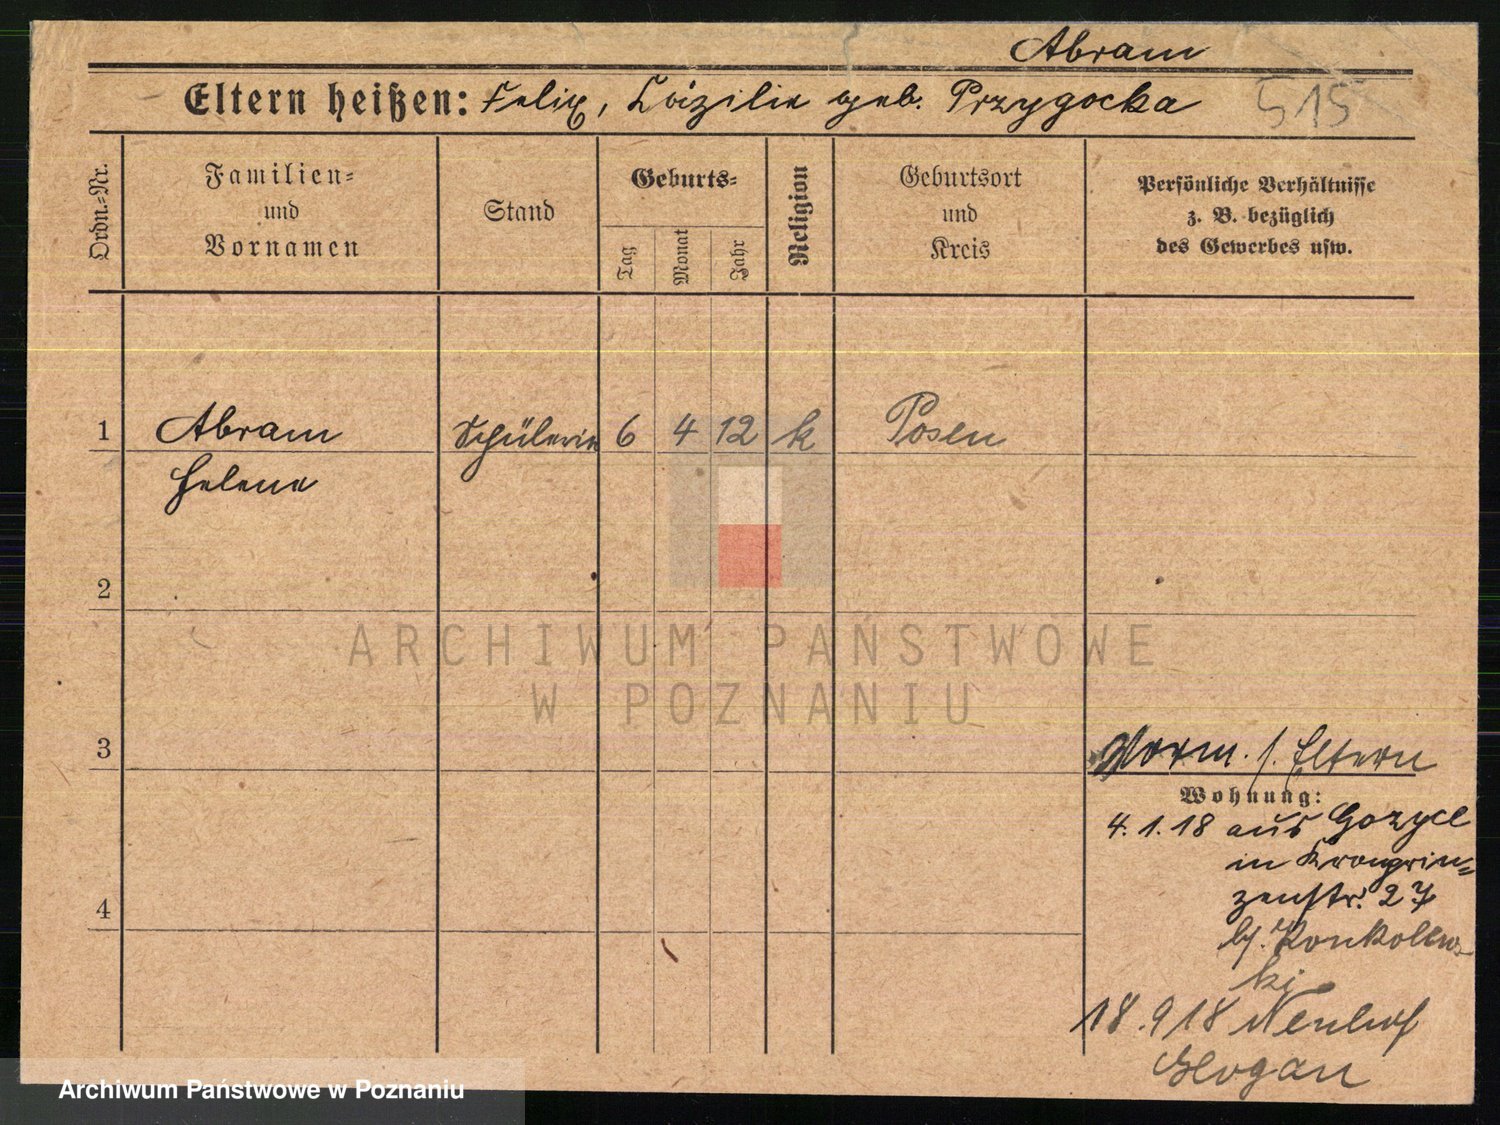 Abram
Eltern heißen: Felix, Cäzilie geb. Przygocka
515
Ordn.-Nr.
Familien=
und
Vornamen
Stand
Geburts=
Tag
Monat
Jahr
Religion
Geburtsort
und
Kreis
Persönliche Verhältnisse
z. B. bezüglich
des Gewerbes usw.
1 Abram Schülerin 6 4 12 k Posen
Helene
2
ARCHIWUM PAŃSTWOWE
W POZNANIU
3
Vorm. s. Eltern
Wohnung:
4.1.18 aus
in Kronprin=
zenstr. 27
4
b/. Konkolews
ki
18.9 18
Glogau
Archiwum Państwowe w Poznaniu